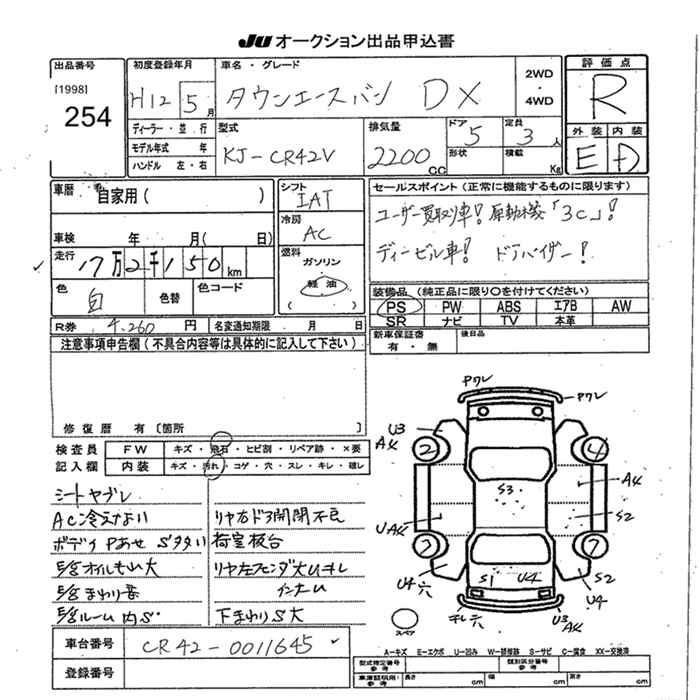 JU オークション出品申込書
出品番号 [1998] 254
初度登録年月 H12 5月
車名・グレード タウンエースバン DX
2WD ・ 4WD
評価点 R
ディーラー・並行
モデル年式 年
ハンドル 左・右
型式 KJ-CR42V
排気量 2200 CC
ドア 5
形状
定員 3人
積載 Kg
外装 E 内装 D
車歴 自家用( )
車検 年 月( 日)
走行 17万2千150 km
色 白 色替 色コード
シフト IAT
冷房 AC
燃料 ガソリン
軽油
( )
セールスポイント(正常に機能するものに限ります)
ユーザー買取り車! 原動機「3C」!
ディーゼル車! ドアバイザー!
装備品(純正品に限り○を付けてください)
PS PW ABS エアB AW
SR ナビ TV 本革
R券 4,260 円 名変通知期限 月 日
新車保証書 有・無 後日品
注意事項申告欄(不具合内容等は具体的に記入して下さい)
修復歴 有〔箇所 〕
検査員 FW キズ・飛石・ヒビ割・リペア跡・×要
記入欄 内装 キズ・汚れ・コゲ・穴・スレ・キレ・破レ
シートヤブレ
AC冷えない リヤ右ドア開閉不良
ボディPあせ Sタタい 荷室板台
E/Gオイルもい大 リヤ左フェンダ大Uキレ
E/Gまわり音
E/Gルーム内S 下まわりS大
車台番号 CR42-0011645
登録番号
Pワレ
Pワレ
U3
A4
2
4
S3
A4
UA4
S2
3
7
U4 穴
S1 U4
S2
U4
キレ穴
U3
A4
スペア
A-キズ E-エクボ U-凹み W-補修跡 S-サビ C-腐食 XX-交換済
型式指定番号 参考 類別区分番号 参考
車庫証明用・参考 長さ cm 幅 cm 高さ cm